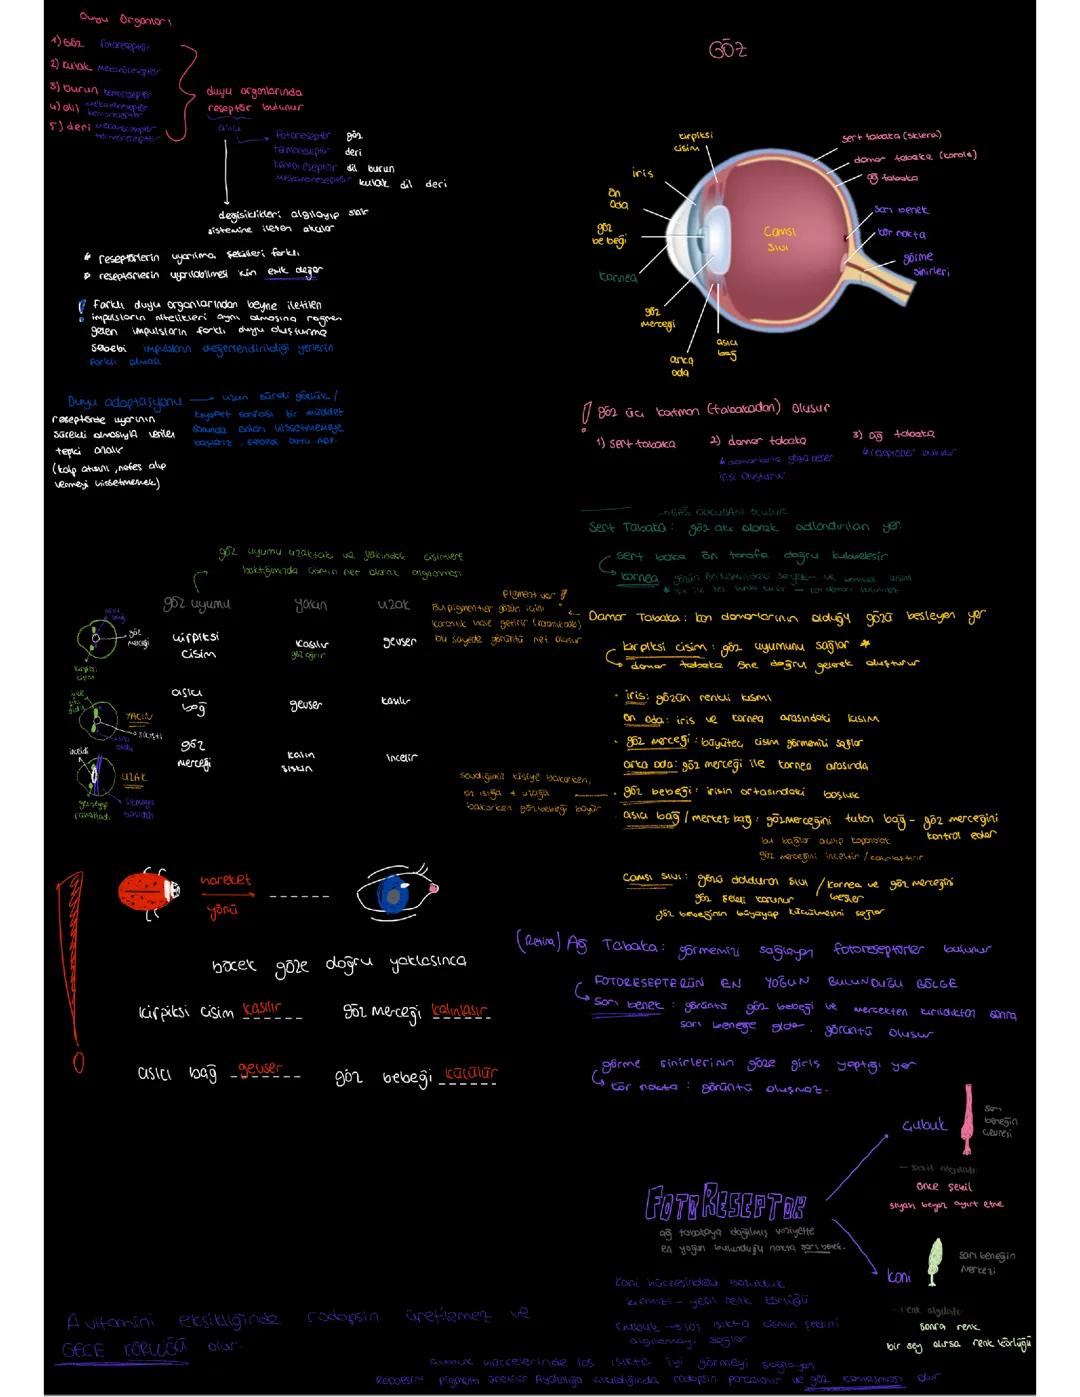 Duyu Organları
1) Göz fotoreseptör
2) kulak mekanoreseptör
3) burun kemoreseptör
4) dil mekanoreseptör
kemoreseptör
5) deri mekanoreseptör
termoreseptör
duyu organlarında
reseptör bulunur
alıcı
fotoreseptör göz
termoreseptör deri
kemoreseptör dil burun
mekanoreseptör kulak dil deri
değişiklikleri algılayıp sinir
sistemine ileten alıcılar
* reseptörlerin uyarılma şekilleri farklı
* reseptörlerin uyarılabilmesi için eşik değer
! farklı duyu organlarından beyne iletilen
impulsların nitelikleri aynı olmasına rağmen
gelen impulsların farklı duyu oluşturma
sebebi impulsların değerlendirildiği yerlerin
farklı olması
Duyu adaptasyonu → uzun süreli gözlük /
reseptörde uyarının
sürekli olmasıyla verilen
tepki azalır
(kalp atışını, nefes alıp
vermeyi hissetmemek)
bir müddet
sonunda onları hissetmemeye
başlarız.
GÖZ
kirpiksi
cisim
iris
ön
oda
göz
bebeği
kornea
göz
merceği
arka
oda
asıcı
bağ
Camsı
sıvı
sert tabaka (sklera)
damar tabaka (koroid)
ağ tabaka
sarı benek
kör nokta
görme
sinirleri
! göz üç katman (tabakadan) oluşur
1) sert tabaka 2) damar tabaka 3) ağ tabaka
* reseptörler bulunur
irisi oluşturur
BAĞ DOKUDAN OLUŞUR
Sert Tabaka: göz akı olarak adlandırılan yer.
sert tabaka ön tarafa doğru kubbeleşir
kornea gözün ön kısmındaki saydam ve kısım
kan damarı bulunmaz
göz uyumu uzaktaki ve yakındaki cisimlere
baktığımızda cismin net olarak algılanması
göz uyumu yakın uzak
kirpiksi
cisim
kasılır
göz ağrır
gevşer
asıcı
bağ
gevşer
kasılır
göz
merceği
kalın
şişkin
incelir
göz
merceği
kirpiksi
cisim
YAKIN
UZAK
inceldi
pigment var !
Bu pigmentler gözün içini
karanlık hale getirir (karanlık oda)
bu sayede görüntü net oluşur
Damar Tabaka: kan damarlarının olduğu gözü besleyen yer
kirpiksi cisim: göz uyumunu sağlar *
damar tabaka öne doğru gelerek oluşturur
iris: gözün renkli kısmı
ön oda: iris ve kornea arasındaki kısım
göz merceği: büyüteç cisim görmemizi sağlar
arka oda: göz merceği ile kornea arasında
göz bebeği: irisin ortasındaki boşluk
sevdiğimiz kişiye bakarken,
az ışığa + uzağa
bakarken göz bebeği büyür
asıcı bağ / mercek bağ: göz merceğini tutan bağ - göz merceğini
kontrol eder
bu bağlar açılıp kapanarak
göz merceğini inceltir / kalınlaştırır
camsı sıvı: gözü dolduran sıvı / kornea ve göz merceğini
göz şekli korunur besler
göz bebeğinin büyüyüp küçülmesini sağlar
hareket
yönü
böcek göze doğru yaklaşınca
kirpiksi cisim kasılır göz merceği kalınlaşır
asıcı bağ gevşer göz bebeği küçülür
(Retina) Ağ Tabaka: görmemizi sağlayan fotoreseptörler bulunur
FOTORESEPTERÜN EN YOĞUN BULUNDUĞU BÖLGE
Sarı benek: görüntü göz bebeği ve mercekten kırıldıktan sonra
sarı beneğe gider. görüntü oluşur
görme sinirlerinin göze giriş yaptığı yer
kör nokta: görüntü oluşmaz.
FOTORESEPTOR
ağ tabakaya dağılmış vaziyette
en yoğun bulunduğu nokta sarı benek.
Çubuk
sarı
beneğin
çevresi
— şekil algıladı
önce şekil
siyah beyaz ayırt etme
koni
sarı beneğin
merkezi
— renk algıladı
sonra renk
bir şey olursa renk körlüğü
Koni hücresindeki bozukluk
kırmızı - yeşil renk körlüğü
Çubuk → loş ışıkta cismin şeklini
algılamayı sağlar
A vitamini eksikliğinde rodopsin üretilemez ve
GECE KÖRLÜĞÜ olur.
Çubuk hücrelerinde loş ışıkta iyi görmeyi sağlayan
Rodopsin pigmenti üretilir Aydınlığa çıkıldığında rodopsin parçalanır ve göz kamaşması olur